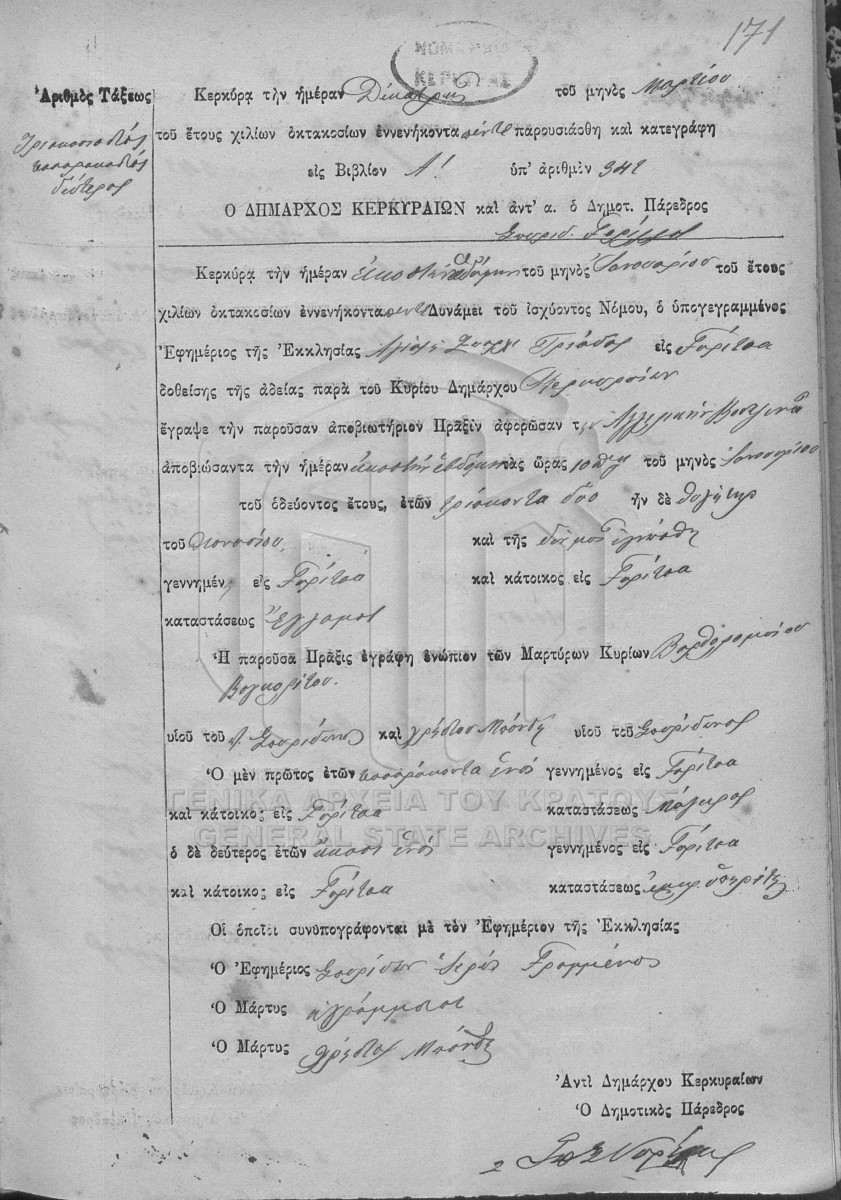 171
ΚΕΡΚΥΡΑΣ
Ἀριθμὸς Τάξεως
Τριακοσιοστὸς
τεσσαρακοστὸς
δεύτερος
Κερκύρᾳ τὴν ἡμέραν Δεκάτην τοῦ μηνὸς Μαρτίου
τοῦ ἔτους χιλίων ὀκτακοσίων ἐννενήκοντα πέντε παρουσιάσθη καὶ κατεγράφη
εἰς Βιβλίον Α! ὑπ' ἀριθμὸν 342
Ὁ ΔΗΜΑΡΧΟΣ ΚΕΡΚΥΡΑΙΩΝ καὶ ἀντ' α. ὁ Δημοτ. Πάρεδρος
Σπυρίδ.
Κερκύρᾳ τὴν ἡμέραν εἰκοστὴν ἑβδόμην τοῦ μηνὸς Ἰανουαρίου τοῦ ἔτους
χιλίων ὀκτακοσίων ἐννενήκοντα πέντε Δυνάμει τοῦ ἰσχύοντος Νόμου, ὁ ὑπογεγραμμένος
Ἐφημέριος τῆς Ἐκκλησίας Ἁγίας Τριάδος εἰς Γαρίτσα
δοθείσης τῆς ἀδείας παρὰ τοῦ Κυρίου Δημάρχου Κερκυραίων
ἔγραψε τὴν παροῦσαν ἀποβιωτήριον Πρᾶξιν ἀφορῶσαν τ Ἀγγελικὴν
ἀποβιώσαντα τὴν ἡμέραν εἰκοστὴν ἑβδόμην τὰς ὥρας 10 τοῦ μηνὸς Ἰανουαρίου
τοῦ ὁδεύοντος ἔτους, ἐτῶν τριάκοντα δύο ἦν δὲ θυγάτηρ
τοῦ Διονυσίου καὶ τῆς
γεννημέν εἰς Γαρίτσα καὶ κάτοικος εἰς Γαρίτσα
καταστάσεως Ἔγγαμος
Ἡ παροῦσα Πρᾶξις ἐγράφη ἐνώπιον τῶν Μαρτύρων Κυρίων Βαρθολομαίου
υἱοῦ τοῦ Σπυρίδωνος καὶ Χρήστος Μπόνδης υἱοῦ τοῦ Σπυρίδωνος
Ὁ μὲν πρῶτος ἐτῶν τεσσαράκοντα ἑνὸς γεννημένος εἰς Γαρίτσα
καὶ κάτοικος εἰς Γαρίτσα καταστάσεως Μάγειρος
ὁ δὲ δεύτερος ἐτῶν εἴκοσι ἑνὸς γεννημένος εἰς Γαρίτσα
καὶ κάτοικος εἰς Γαρίτσα καταστάσεως ὑπηρέτης
Οἱ ὁποῖοι συνυπογράφονται μὲ τὸν Ἐφημέριον τῆς Ἐκκλησίας
Ὁ Ἐφημέριος Σπυρίδων Ἱερεὺς Γραμμένος
Ὁ Μάρτυς ἀγράμματος
Ὁ Μάρτυς Χρήστος Μπόνδης
Ἀντὶ Δημάρχου Κερκυραίων
Ὁ Δημοτικὸς Πάρεδρος
ΓΕΝΙΚΑ ΑΡΧΕΙΑ ΤΟΥ ΚΡΑΤΟΥΣ
GENERAL STATE ARCHIVES